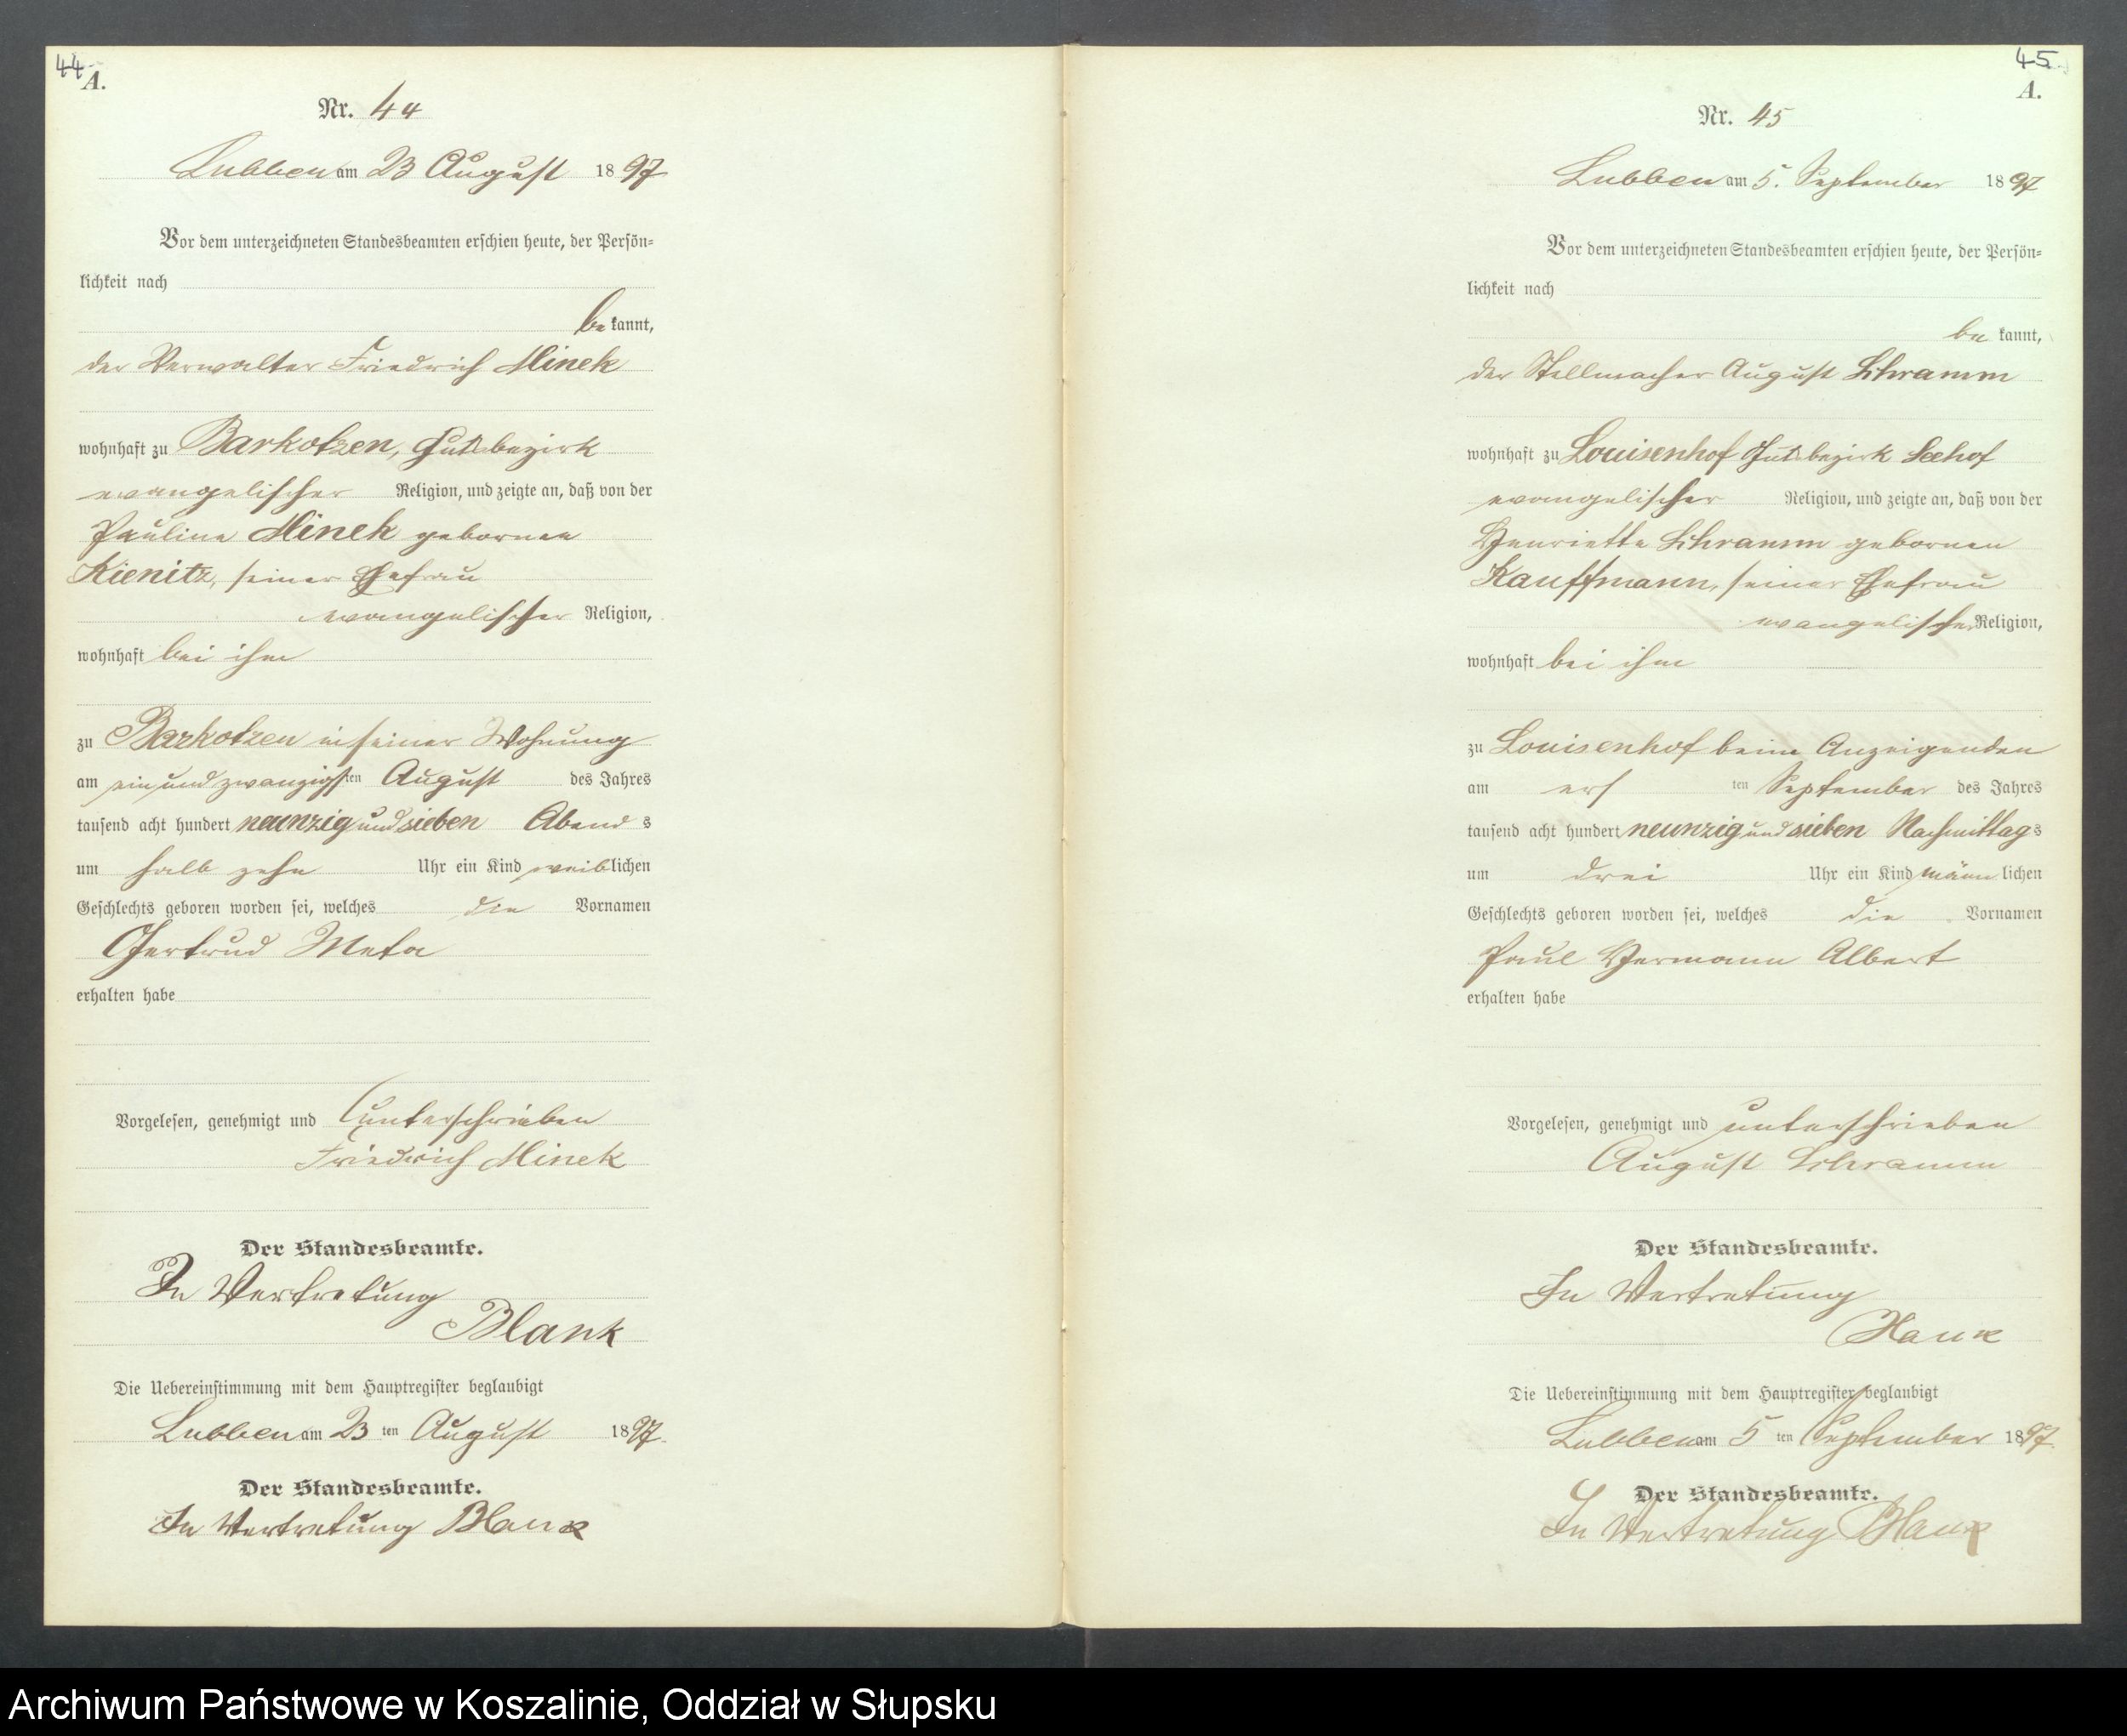 44
A.
Nr. 44
Lubben am 23 August 1897
Vor dem unterzeichneten Standesbeamten erschien heute, der Persön=
lichkeit nach
be kannt,
der Verwalter Friedrich Minek
wohnhaft zu Barkotzen, Gutsbezirk
evangelischer Religion, und zeigte an, daß von der
Pauline Minek gebornen
Kienitz, seiner Ehefrau
evangelischer Religion,
wohnhaft bei ihm
zu Barkotzen in seiner Wohnung
am ein und zwanzigsten August des Jahres
tausend acht hundert neunzig und sieben Abend s
um halb zehn Uhr ein Kind weiblichen
Geschlechts geboren worden sei, welches die Vornamen
Gertrud Meta
erhalten habe
Vorgelesen, genehmigt und unterschrieben
Friedrich Minek
Der Standesbeamte.
In Vertretung
Blank
Die Uebereinstimmung mit dem Hauptregister beglaubigt
Lubben am 23 ten August 1897.
Der Standesbeamte.
In Vertretung Blank
45
A.
Nr. 45
Lubben am 5. September 1897
Vor dem unterzeichneten Standesbeamten erschien heute, der Persön=
lichkeit nach
be kannt,
der Stellmacher August Schramm
wohnhaft zu Louisenhof Gutsbezirk Seehof
evangelischer Religion, und zeigte an, daß von der
Henriette Schramm gebornen
Kauffmann, seiner Ehefrau
evangelischer Religion,
wohnhaft bei ihm
zu Louisenhof beim Anzeigenden
am ers ten September des Jahres
tausend acht hundert neunzig und sieben Nachmittags
um drei Uhr ein Kind männ lichen
Geschlechts geboren worden sei, welches die Vornamen
Paul Hermann Albert
erhalten habe
Vorgelesen, genehmigt und unterschrieben
August Schramm
Der Standesbeamte.
In Vertretung
Blank
Die Uebereinstimmung mit dem Hauptregister beglaubigt
Lubben am 5 ten September 1897.
Der Standesbeamte.
In Vertretung Blank
Archiwum Państwowe w Koszalinie, Oddział w Słupsku